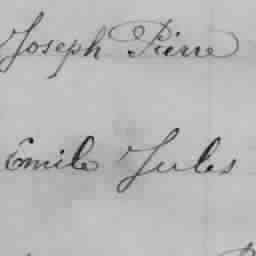 Joseph Pierre
Emile Jules